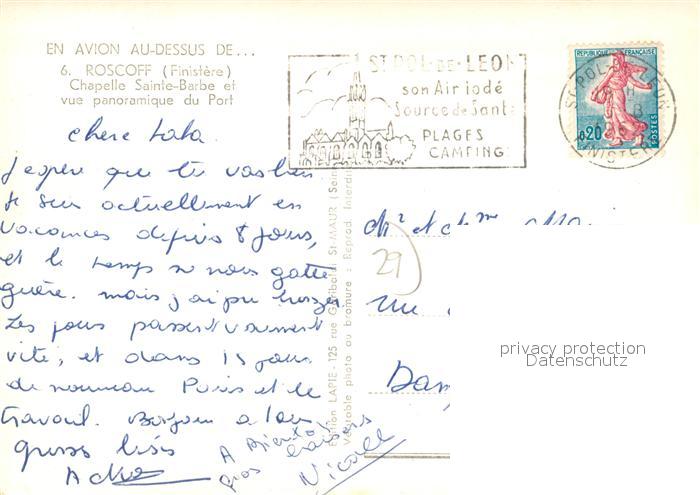 EN AVION AU-DESSUS DE...
6. ROSCOFF (Finistère)
Chapelle Sainte-Barbe et
vue panoramique du Port
ST POL-DE-LEON
son Air iodé
Source de Santé
PLAGES
CAMPING
REPUBLIQUE FRANÇAISE
0,20
POSTES
ST POL-DE-LEON
FINISTERE
chère Lala.
J'espère que tu vas bien
Je suis actuellement en
vacances depuis 8 jours,
et le temps ne nous gatte
guère. mais j'ai pu
Les jours passent vraiment
vite, et dans 15 jours
de nouveau Paris et le
travail. Bonjour a tous
gros bisés
A Bientôt
gros baisers
Nicole
Edition LAPIE - 125 rue Garibaldi St MAUR (Seine
Véritable photo au bromure : Reprod. Interdite
Mr et Mme
29
privacy protection
Datenschutz